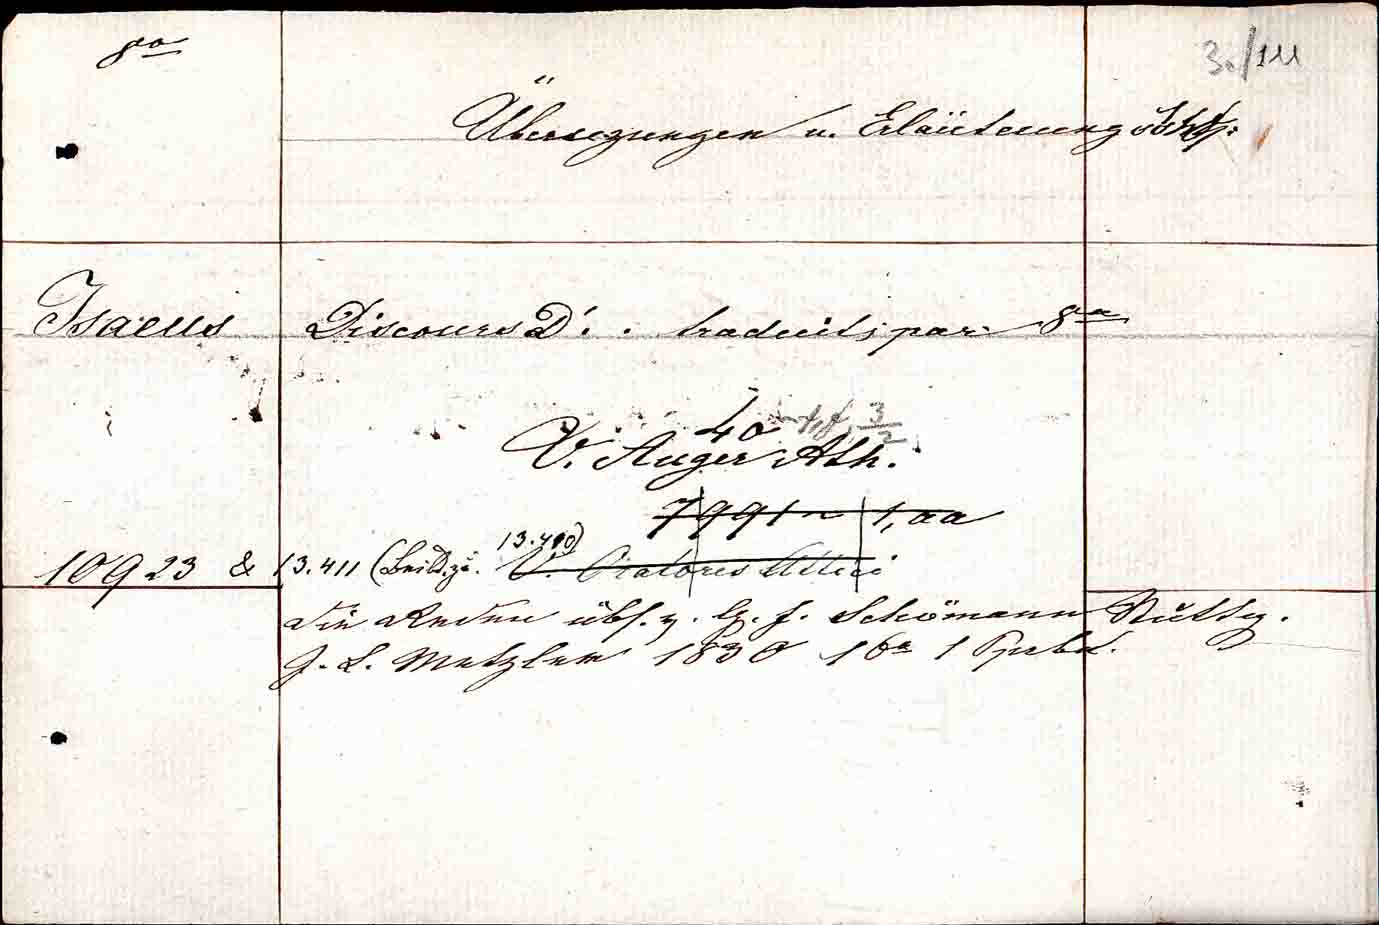 8o
3./111
Übersezungen u. Erläuterung
Isaeus Discours D'. . traduits par 8o
40 3/2
V. Auger Ath.
7991 1,aa
13.410)
10923 & 13.411 (Beibd. zu. V. Oratores Attici
Die Reden übs. v. G. F. Schömann Stuttg.
J. B. Metzler 1830 16o 1 Hprbd.